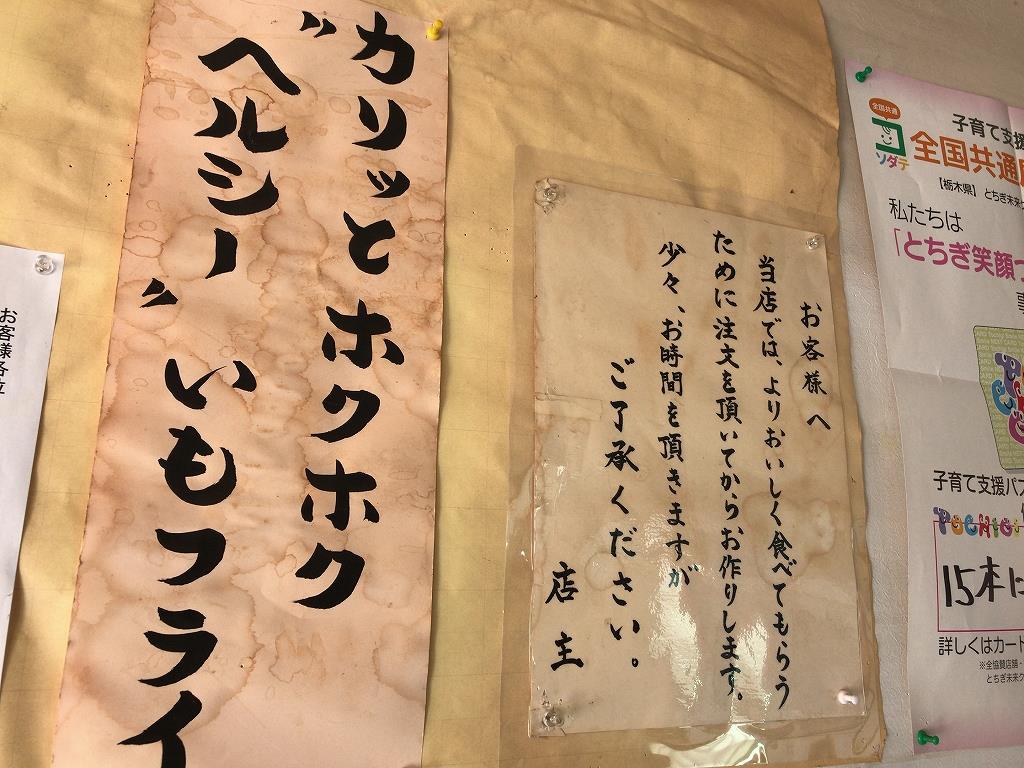 カリッとホクホク
"ヘルシー"いもフライ
お客様へ
当店では、よりおいしく食べてもらう
ために注文を頂いてからお作りします。
少々、お時間を頂きますが
ご了承ください。
店主
お客様各位
全国共通
コソダテ
子育て支援
全国共通
【栃木県】 とちぎ未来
私たちは
「とちぎ笑顔つ
子育て支援パス
15本に
詳しくはカート
※全協賛店舗・
とちぎ未来ク